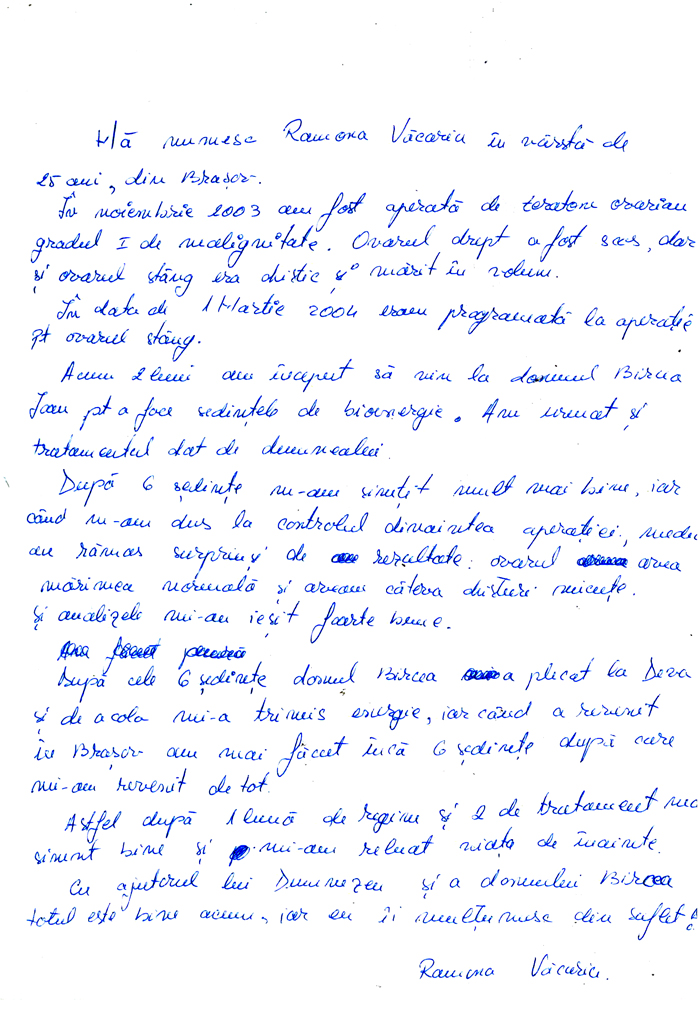 Mă numesc Ramona Văcariu în vârstă de
25 ani, din Brașov.
În noiembrie 2003 am fost operată de teratom ovarian
gradul I de malignitate. Ovarul drept a fost scos, dar
și ovarul stâng era chistic și mărit în volum.
În data de 1 Martie 2004 eram programată la operație
pt ovarul stâng.
Acum 2 luni am început să vin la domnul Bircea
Ioan pt a face sedințele de bioenergie. Am urmat și
tratamentul dat de dumnealui.
După 6 ședințe m-am simțit mult mai bine, iar
când m-am dus la controlul dinaintea operației, medici
au rămas surprinși de rezultate: ovarul avea
mărimea normală și aveam câteva chisturi micuțe.
și analizele mi-au ieșit foarte bine.
După cele 6 ședințe domnul Bircea a plecat la Deva
și de acolo mi-a trimis energie, iar când a revenit
în Brașov am mai făcut încă 6 ședințe după care
mi-am revenit de tot.
Astfel după 1 lună de regim și 2 de tratament mă
simint bine și mi-am reluat viața de înainte.
Cu ajutorul lui Dumnezeu și a domnului Bircea
totul este bine acum, iar eu îi mulțumesc din suflet!
Ramona Văcariu.